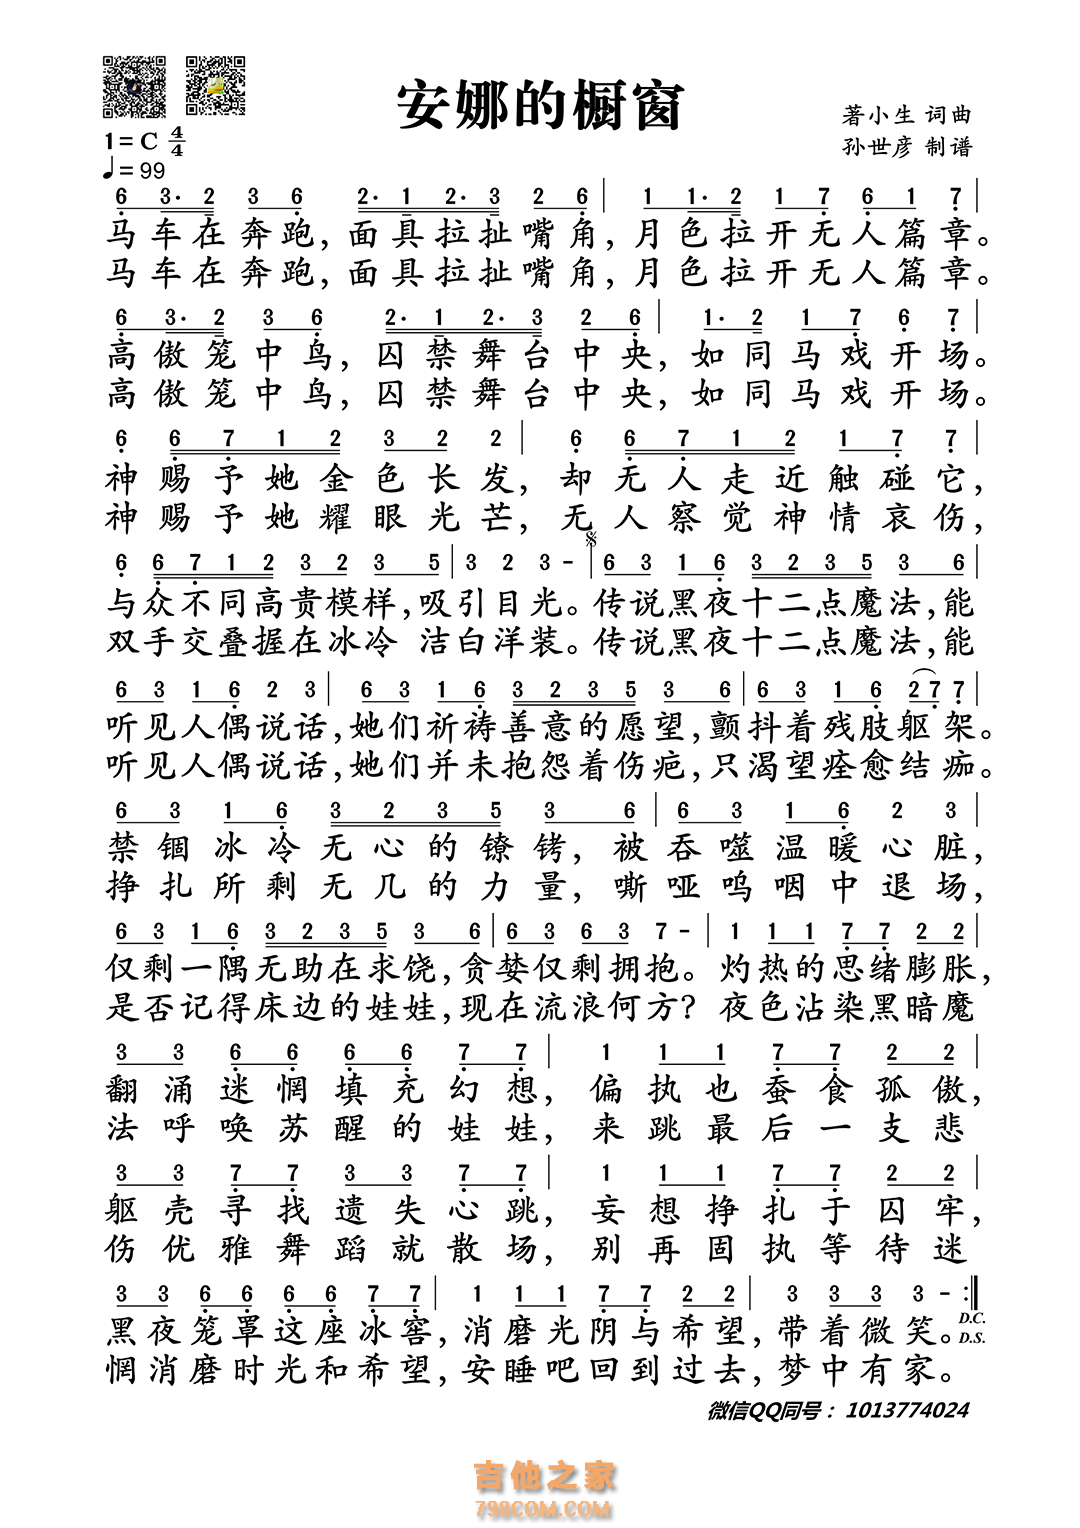 安娜的橱窗
著小生 词曲
孙世彦 制谱
1=C 4/4
♩=99
6 3· 2 3 6 2· 1 2· 3 2 6 | 1 1· 2 1 7 6 1 7 |
马车在奔跑，面具拉扯嘴角，月色拉开无人篇章。
马车在奔跑，面具拉扯嘴角，月色拉开无人篇章。
6 3· 2 3 6 2· 1 2· 3 2 6 | 1· 2 1 7 6 7 |
高傲笼中鸟，囚禁舞台中央，如同马戏开场。
高傲笼中鸟，囚禁舞台中央，如同马戏开场。
6 6 7 1 2 3 2 2 | 6 6 7 1 2 1 7 7 |
神赐予她金色长发，却无人走近触碰它，
神赐予她耀眼光芒，无人察觉神情哀伤，
6 6 7 1 2 3 2 3 5 | 3 2 3 - | 6 3 1 6 3 2 3 5 3 6 |
与众不同高贵模样，吸引目光。传说黑夜十二点魔法，能
双手交叠握在冰冷 洁白洋装。传说黑夜十二点魔法，能
6 3 1 6 2 3 | 6 3 1 6 3 2 3 5 3 6 | 6 3 1 6 2 7 7 |
听见人偶说话，她们祈祷善意的愿望，颤抖着残肢躯架。
听见人偶说话，她们并未抱怨着伤疤，只渴望痊愈结痂。
6 3 1 6 3 2 3 5 3 6 | 6 3 1 6 2 3 |
禁锢冰冷无心的镣铐，被吞噬温暖心脏，
挣扎所剩无几的力量，嘶哑呜咽中退场，
6 3 1 6 3 2 3 5 3 6 | 6 3 6 3 7 - | 1 1 1 7 7 2 2 |
仅剩一隅无助在求饶，贪婪仅剩拥抱。灼热的思绪膨胀，
是否记得床边的娃娃，现在流浪何方？夜色沾染黑暗魔
3 3 6 6 6 6 7 7 | 1 1 1 7 7 2 2 |
翻涌迷惘填充幻想，偏执也蚕食孤傲，
法呼唤苏醒的娃娃，来跳最后一支悲
3 3 7 7 3 3 7 7 | 1 1 1 7 7 2 2 |
躯壳寻找遗失心跳，妄想挣扎于囚牢，
伤优雅舞蹈就散场，别再固执等待迷
3 3 6 6 6 6 7 7 | 1 1 1 7 7 2 2 | 3 3 3 3 - :‖
黑夜笼罩这座冰窖，消磨光阴与希望，带着微笑。
D.C.
D.S.
惘消磨时光和希望，安睡吧回到过去，梦中有家。
微信QQ同号：1013774024
吉他之家
798COM.COM